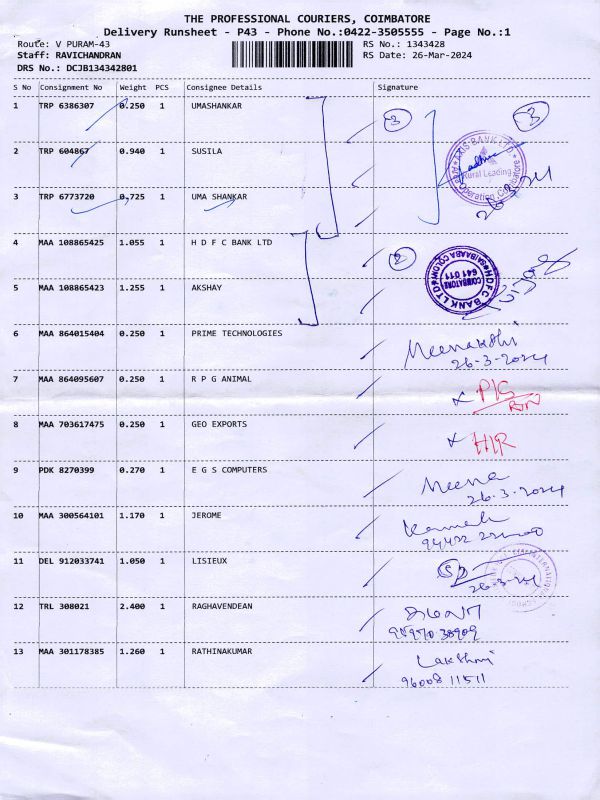 THE PROFESSIONAL COURIERS, COIMBATORE
Delivery Runsheet - P43 - Phone No.:0422-3505555 - Page No.:1
Route: V PURAM-43 RS No.: 1343428
Staff: RAVICHANDRAN RS Date: 26-Mar-2024
DRS No.: DCJB134342801
S No Consignment No Weight PCS Consignee Details Signature
1 TRP 6386307 0.250 1 UMASHANKAR 3 3
2 TRP 604867 0.940 1 SUSILA AXIS BANK LTD
3 TRP 6773720 0.725 1 UMA SHANKAR
4 MAA 108865425 1.055 1 H D F C BANK LTD 2 HDFC BANK LTD COIMBATORE 641 011
5 MAA 108865423 1.255 1 AKSHAY
6 MAA 864015404 0.250 1 PRIME TECHNOLOGIES Meenakshi
26-3-2024
7 MAA 864095607 0.250 1 R P G ANIMAL
8 MAA 703617475 0.250 1 GEO EXPORTS
9 PDK 8270399 0.270 1 E G S COMPUTERS Meena
26-3-2024
10 MAA 300564101 1.170 1 JEROME
11 DEL 912033741 1.050 1 LISIEUX
12 TRL 308021 2.400 1 RAGHAVENDEAN
13 MAA 301178385 1.260 1 RATHINAKUMAR Lakshmi
96008 11511